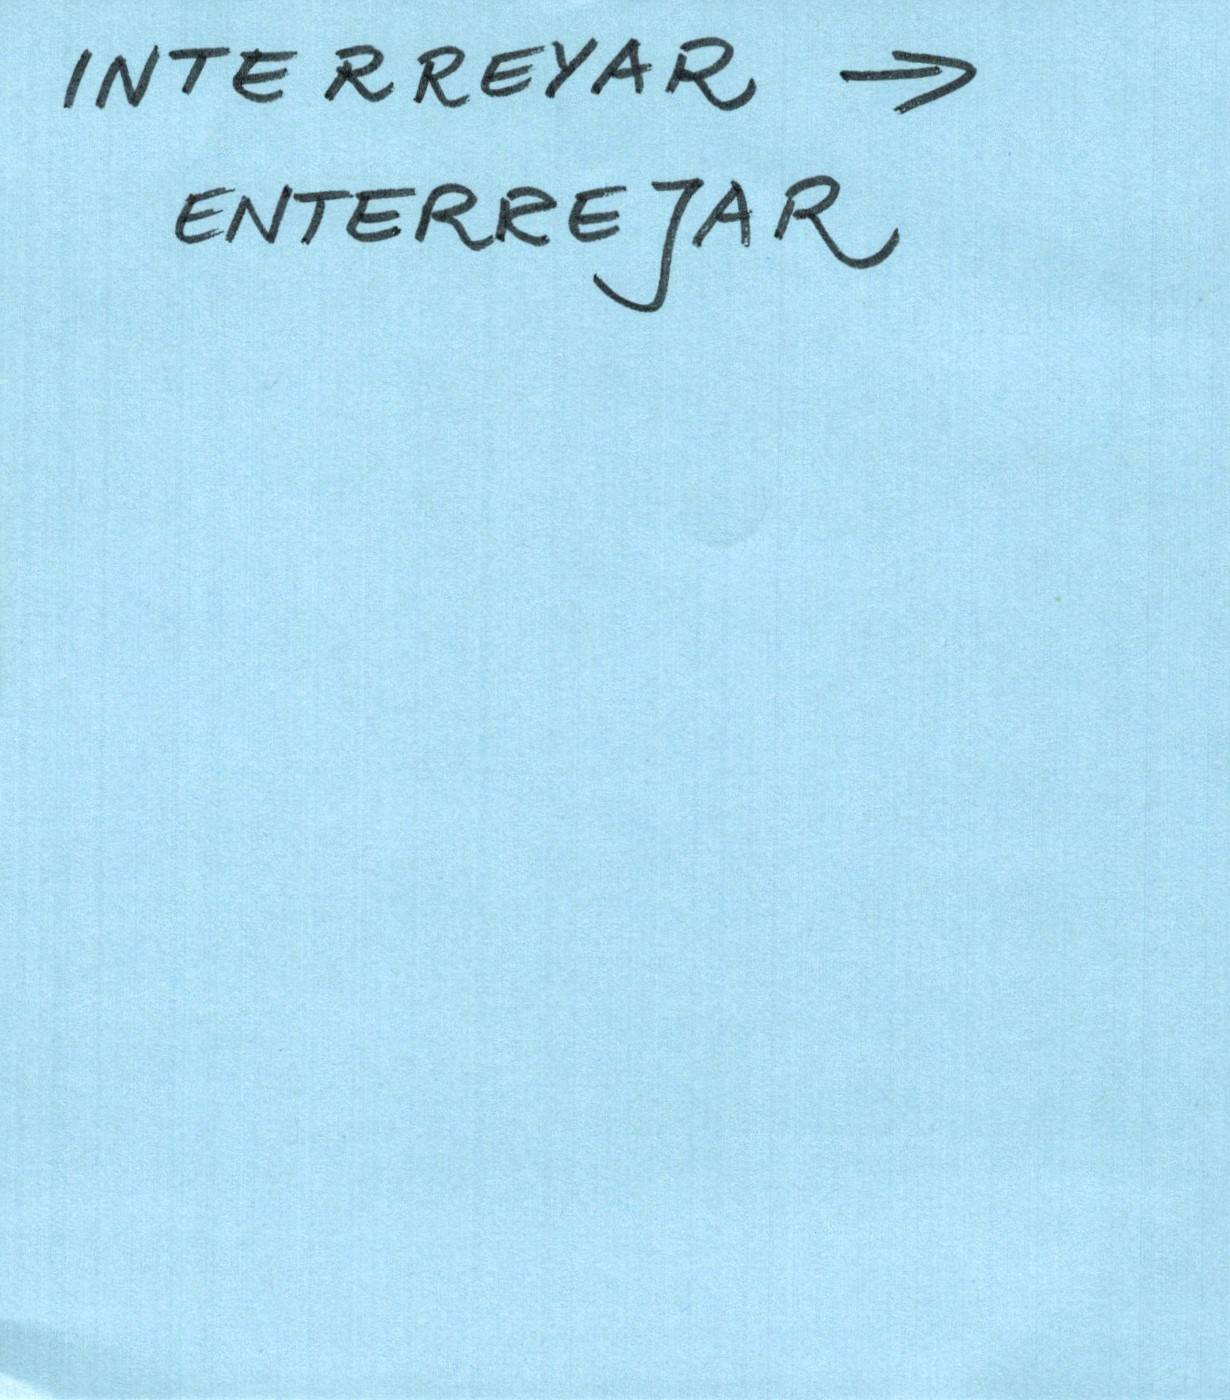 INTERREYAR →
ENTERREJAR